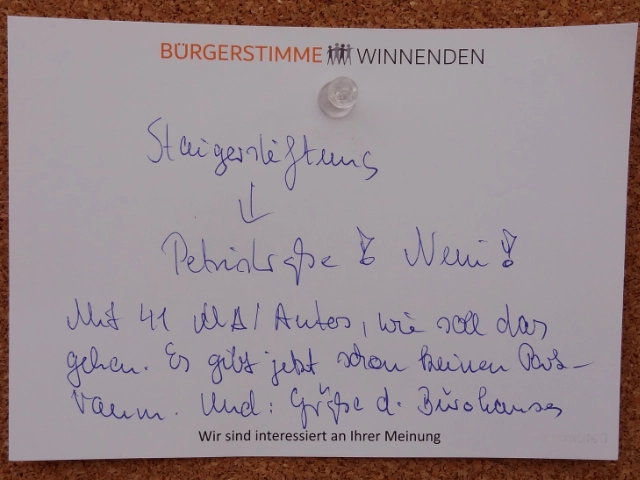 BÜRGERSTIMME WINNENDEN
Staigerstiftung
↓
Petristraße! Nein!
Mit 41 MA/Autos, wie soll das
gehen. Es gibt jetzt schon keinen Park-
raum. Und: Größe d. Bürohauses
Wir sind interessiert an Ihrer Meinung